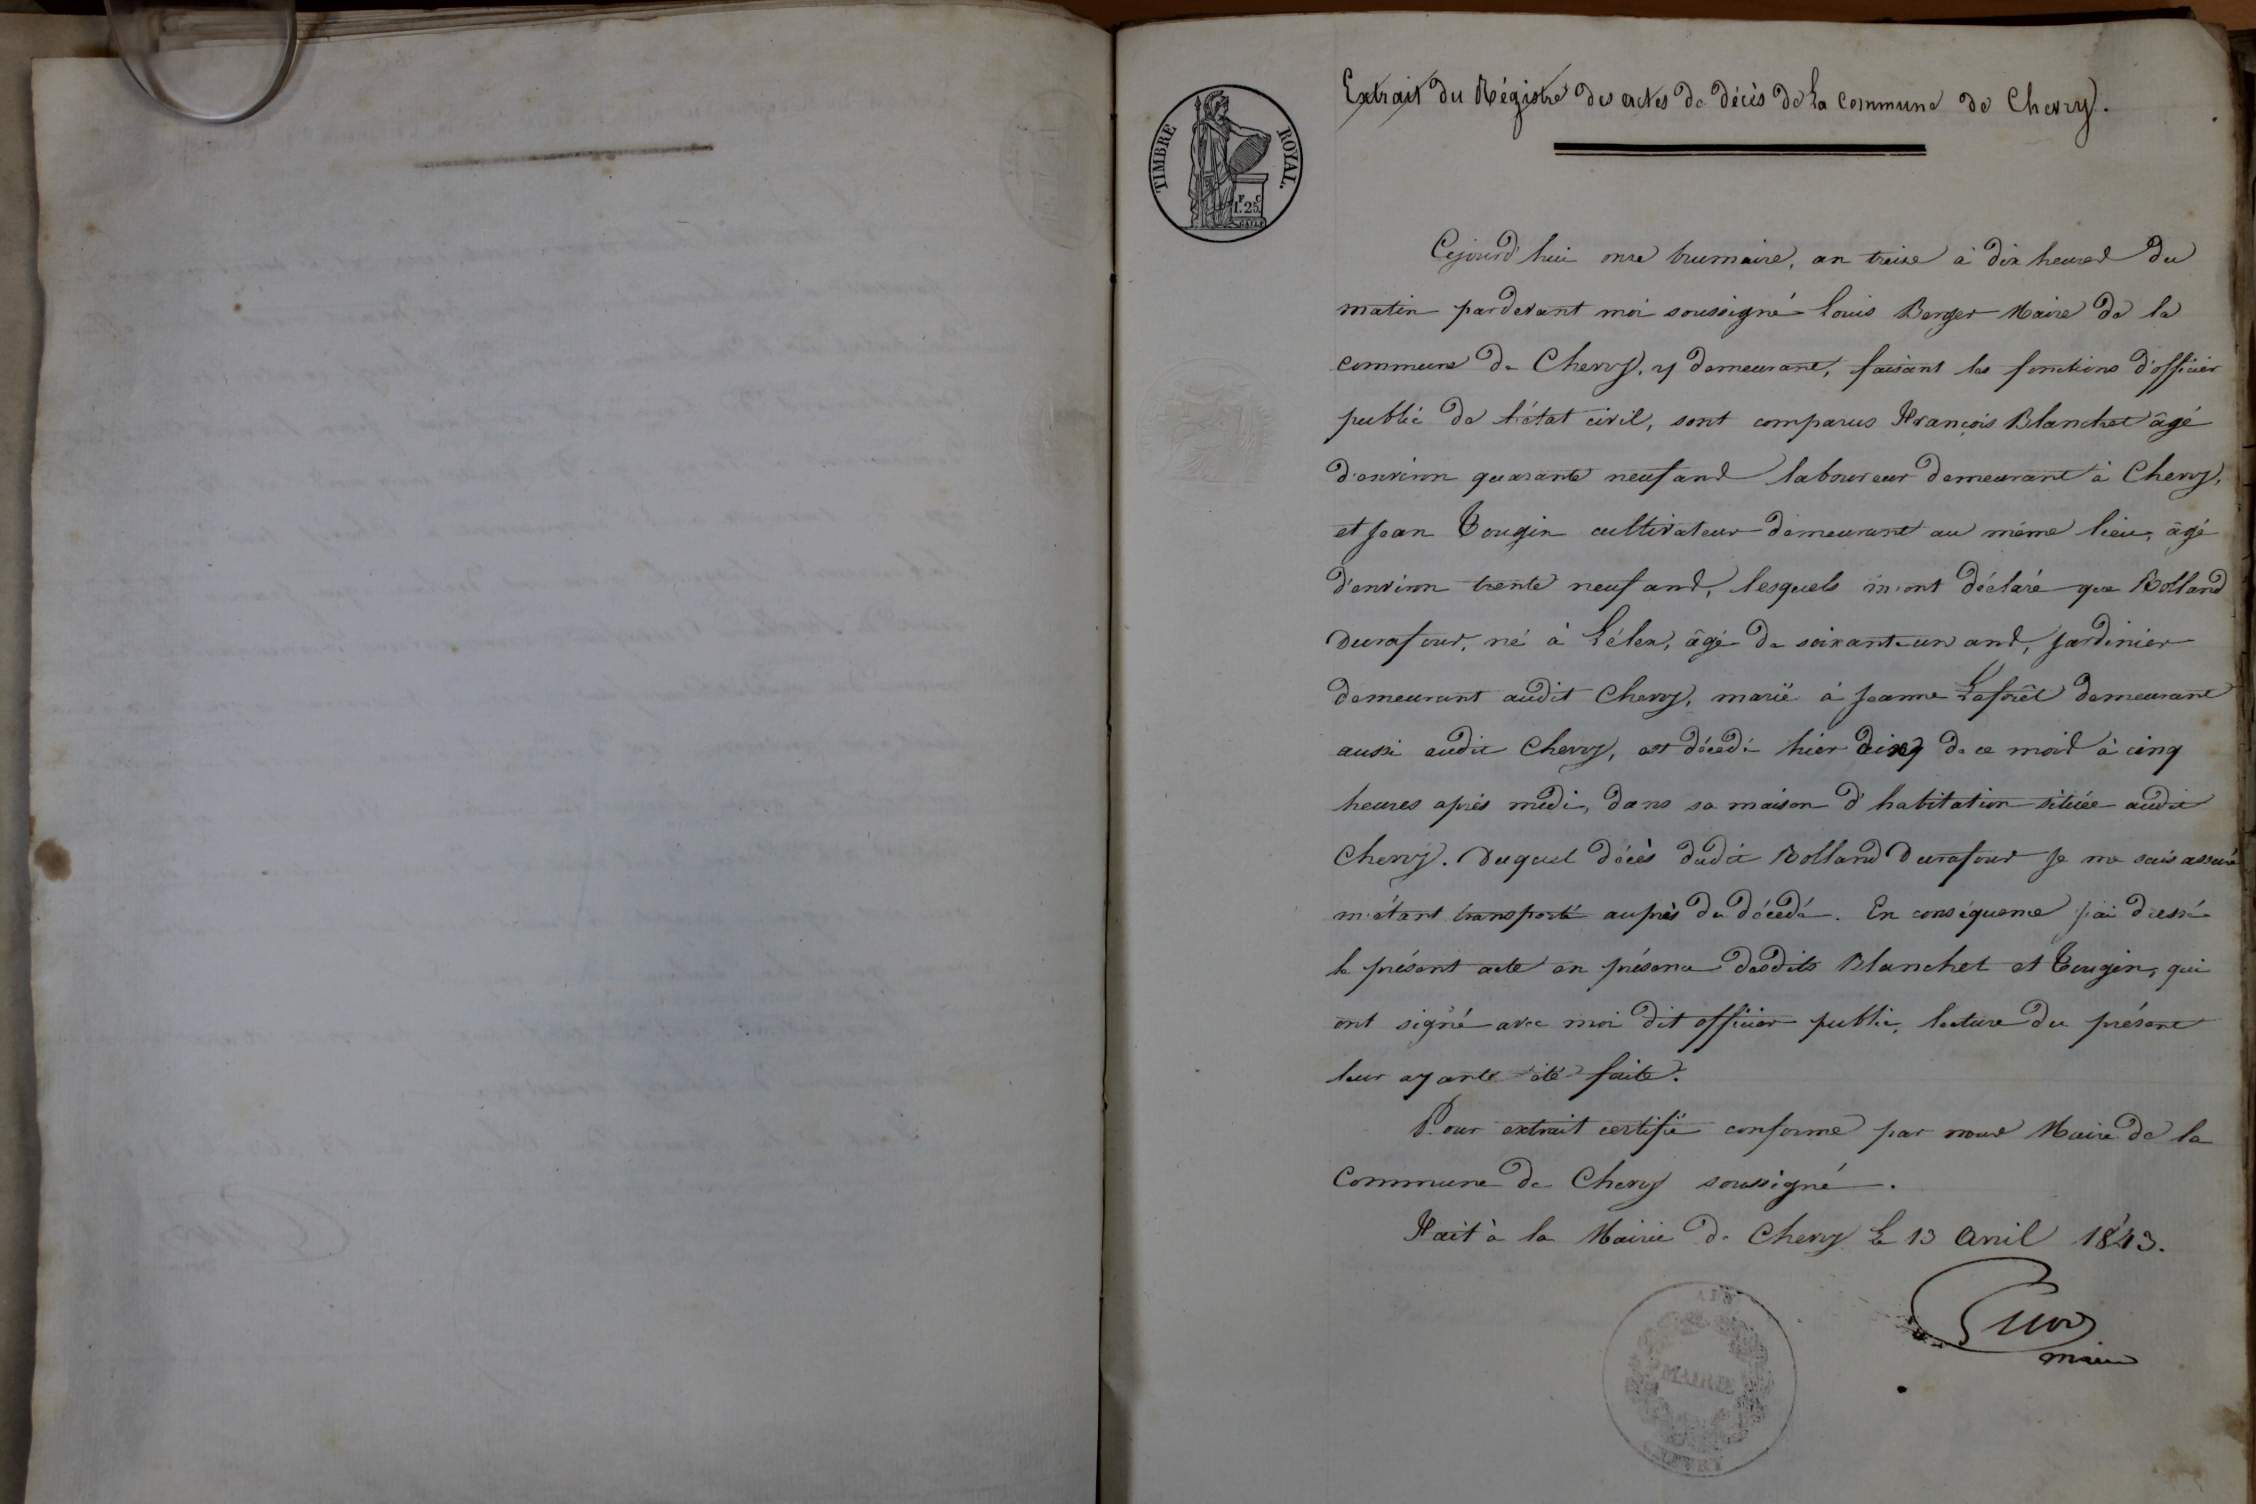 Extrait du Régistre des actes de décès de La Commune de Chevry.
TIMBRE ROYAL.
1F. 25C
Cejourd'hui onze brumaire, an treize à dix heures du
matin pardevant moi soussigné Louis Berger Maire de la
commune de Chevry, y demeurant, faisant les fonctions d'officier
public de l'état civil, sont comparus François Blanchet âgé
d'environ quarante neuf ans laboureur demeurant à Chevry,
et Jean Tougin cultivateur demeurant au même lieu, âgé
d'environ trente neuf ans, lesquels m'ont déclaré que Rolland
Durafour, né à Lélex, âgé de soixante un ans, jardinier
demeurant audit Chevry, marié à Jeanne Laforêt demeurant
aussi audit Chevry, est décédé hier dix de ce mois à cinq
heures après midi, dans sa maison d'habitation située audit
Chevry. Duquel décès dudit Rolland Durafour je me suis assuré
m'étant transporté auprès du décédé. En conséquence j'ai dressé
le présent acte en présence desdits Blanchet et Tougin, qui
ont signé avec moi dit officier public, lecture du présent
leur ayant été faite.
Pour extrait certifié conforme par nous Maire de la
Commune de Chevry soussigné.
Fait à la Mairie de Chevry le 13 Avril 1843.
maire
AIN
MAIRIE
CHEVRY